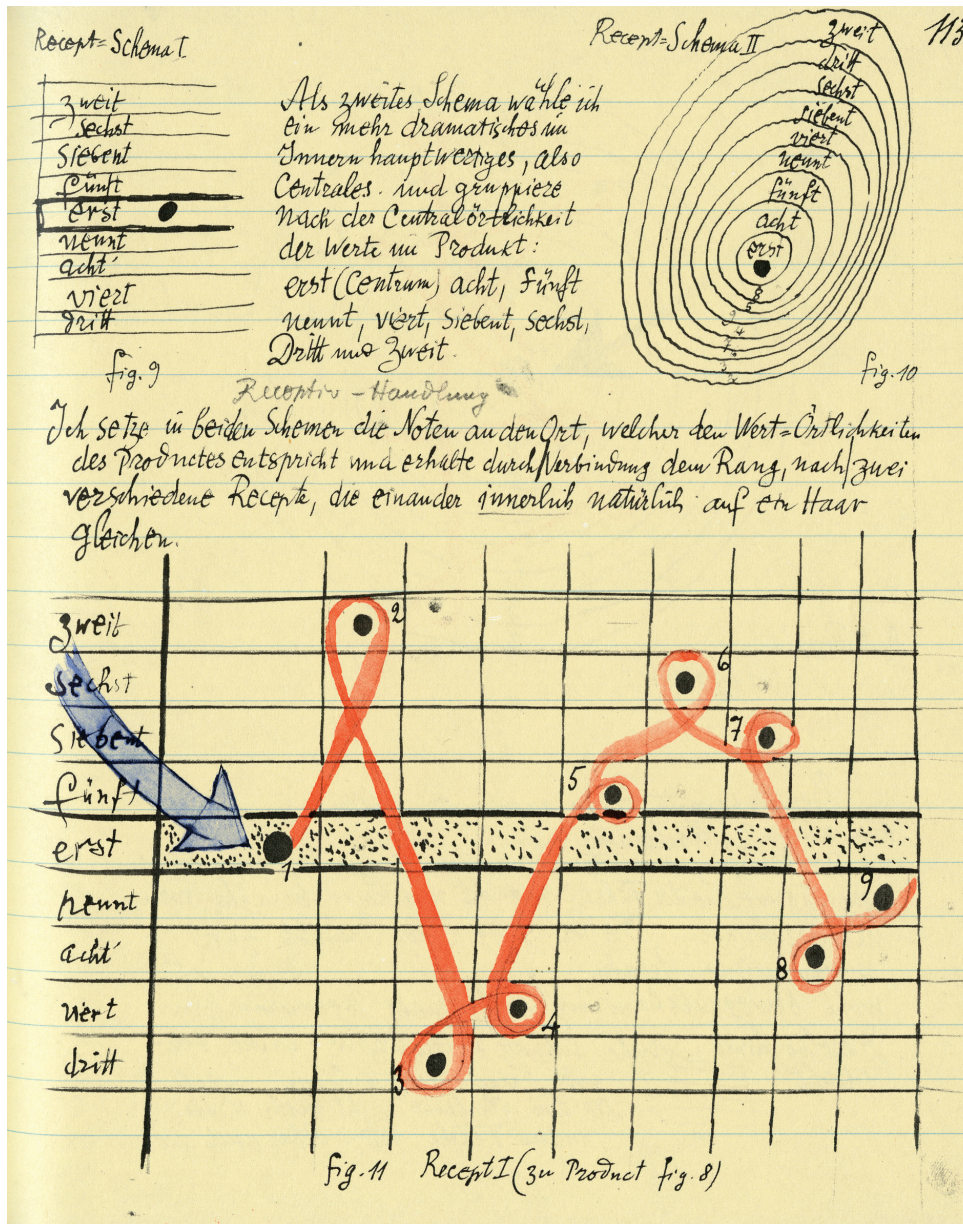 Recept=Schema I
Recept=Schema II
113
zweit
sechst
siebent
fünft
erst
nennt
acht
viert
dritt
fig. 9
Als zweites Schema wähle ich
ein mehr dramatisches im
Innern hauptwertiges, also
Centrales. und gruppiere
nach der Centralörtlichkeit
der Werte im Produkt:
erst (Centrum) acht, fünft
nennt, viert, siebent, sechst,
Dritt und zweit.
zweit
dritt
sechst
siebent
viert
nennt
fünft
acht
erst
fig. 10
Receptiv-Handlung
Ich setze in beiden Schemen die Noten an den Ort, welcher den Wert=Örtlichkeiten
des Productes entspricht und erhalte durch Verbindung dem Rang, nach zwei
verschiedene Recepte, die einander innerlich natürlich auf ein Haar
gleichen.
zweit
sechst
siebent
fünft
erst
nennt
acht
viert
dritt
1
2
3
4
5
6
7
8
9
fig. 11 Recept I (zu Product fig. 8)